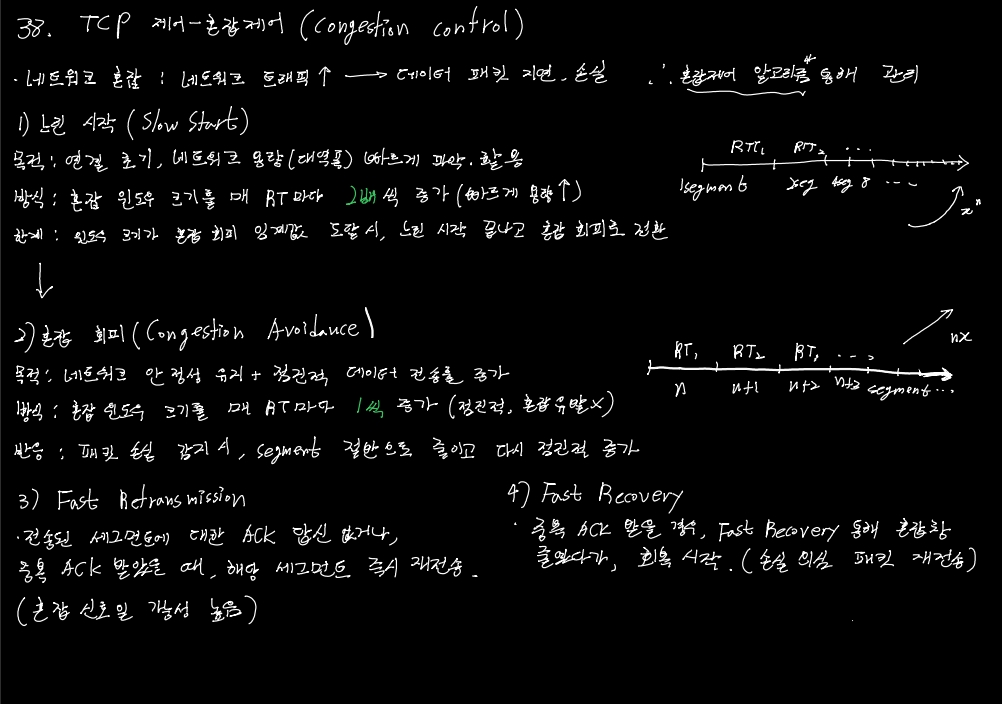 38. TCP 제어-혼잡제어 (Congestion control)
· 네트워크 혼잡 : 네트워크 트래픽↑ → 데이터 패킷 지연, 손실 ∴ 혼잡제어 알고리즘 통해 관리
1) 느린 시작 (Slow Start)
목적 : 연결 초기, 네트워크 용량(대역폭) 빠르게 파악·활용
방식 : 혼잡 윈도우 크기를 매 RT마다 2배씩 증가 (빠르게 용량↑)
한계 : 윈도우 크기가 혼잡 회피 임계값 도달 시, 느린 시작 끝나고 혼잡 회피로 전환
RTT₁ RTT₂ ...
1segment 2seg 4seg 8 ...
xⁿ
↓
2) 혼잡 회피 (Congestion Avoidance)
목적 : 네트워크 안정성 유지 + 점진적 데이터 전송률 증가
방식 : 혼잡 윈도우 크기를 매 RT마다 1씩 증가 (점진적, 혼잡 유발X)
반응 : 패킷 손실 감지 시, segment 절반으로 줄이고 다시 점진적 증가
RT₁ RT₂ RT ...
n n+1 n+2 n+3 segment ...
nx
3) Fast Retransmission
· 전송된 세그먼트에 대한 ACK 답신 없거나,
중복 ACK 받았을 때, 해당 세그먼트 즉시 재전송.
(혼잡 신호일 가능성 높음)
4) Fast Recovery
· 중복 ACK 받을 경우, Fast Recovery 통해 혼잡창
줄였다가, 회복 시작. (손실 의심 패킷 재전송)